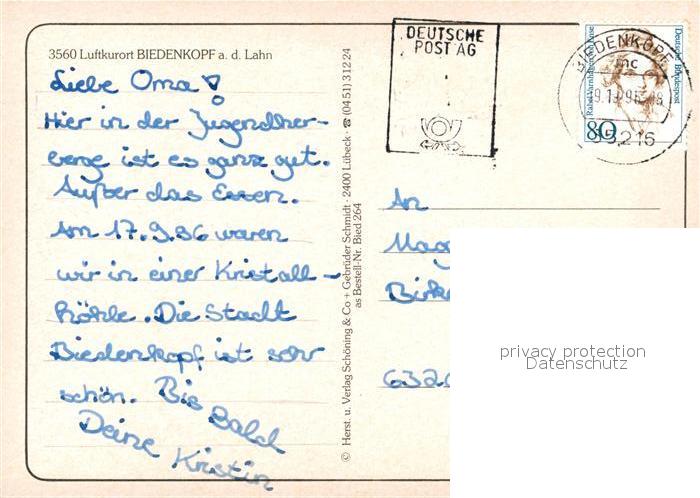 3560 Luftkurort BIEDENKOPF a. d. Lahn
Liebe Oma
Hier in der Jugendher-
berge ist es ganz gut.
Außer das Essen.
Am 17.9.96 waren
wir in einer Kristall-
höhle. Die Stadt
Biedenkopf ist sehr
schön. Bis Bald
Deine Kristin
© Herst. u. Verlag Schöning & Co + Gebrüder Schmidt · 2400 Lübeck · ☎ (0451) 31224
as Bestell-Nr. Bied 264
DEUTSCHE
POST AG
BIEDENKOPF
mc
35216
Deutsche Bundespost
80
An
privacy protection
Datenschutz